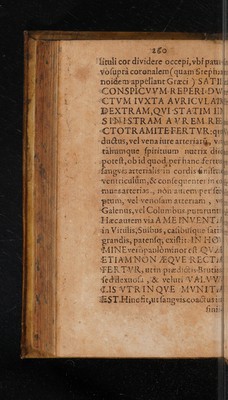 260
lituli cor dividere occepi, vbi paulò
vosupra coronalem (quam Stephan
noidem appellant Græci) SATIS
CONSPICVVM REPERI DV
CTVM IVXTA AVRICVLAM
DEXTRAM, QVI STATIM IN
SINISTRAM AVREM RE
CTO TRAMITE FERTVR: qui
ductus, vel vena iure arteriarũ, vi
taliumque spirituum nutrix dici
potest, ob id quod per hanc feratur
sangvis arterialis in cordis sinistrum
ventriculum, & consequenter in o
mnes arterias, non autem per se
ptum, vel venosam arteriam, vt
Galenus, vel Columbus putarunt:
Hæc autem via A ME INVENTA
in Vitulis, Suibus, canibusque satis
grandis, patensq; existit: IN HO
MINE verò paulò minor est QVÆ
ETIAM NON ÆQVE RECTA
FERTVR, ut in prædictis Brutis
sed flexuosa, & veluti VALVV
LIS VTRINQVE MVNITA
EST. Hinc fit, ut sangvis coactus in
sini-